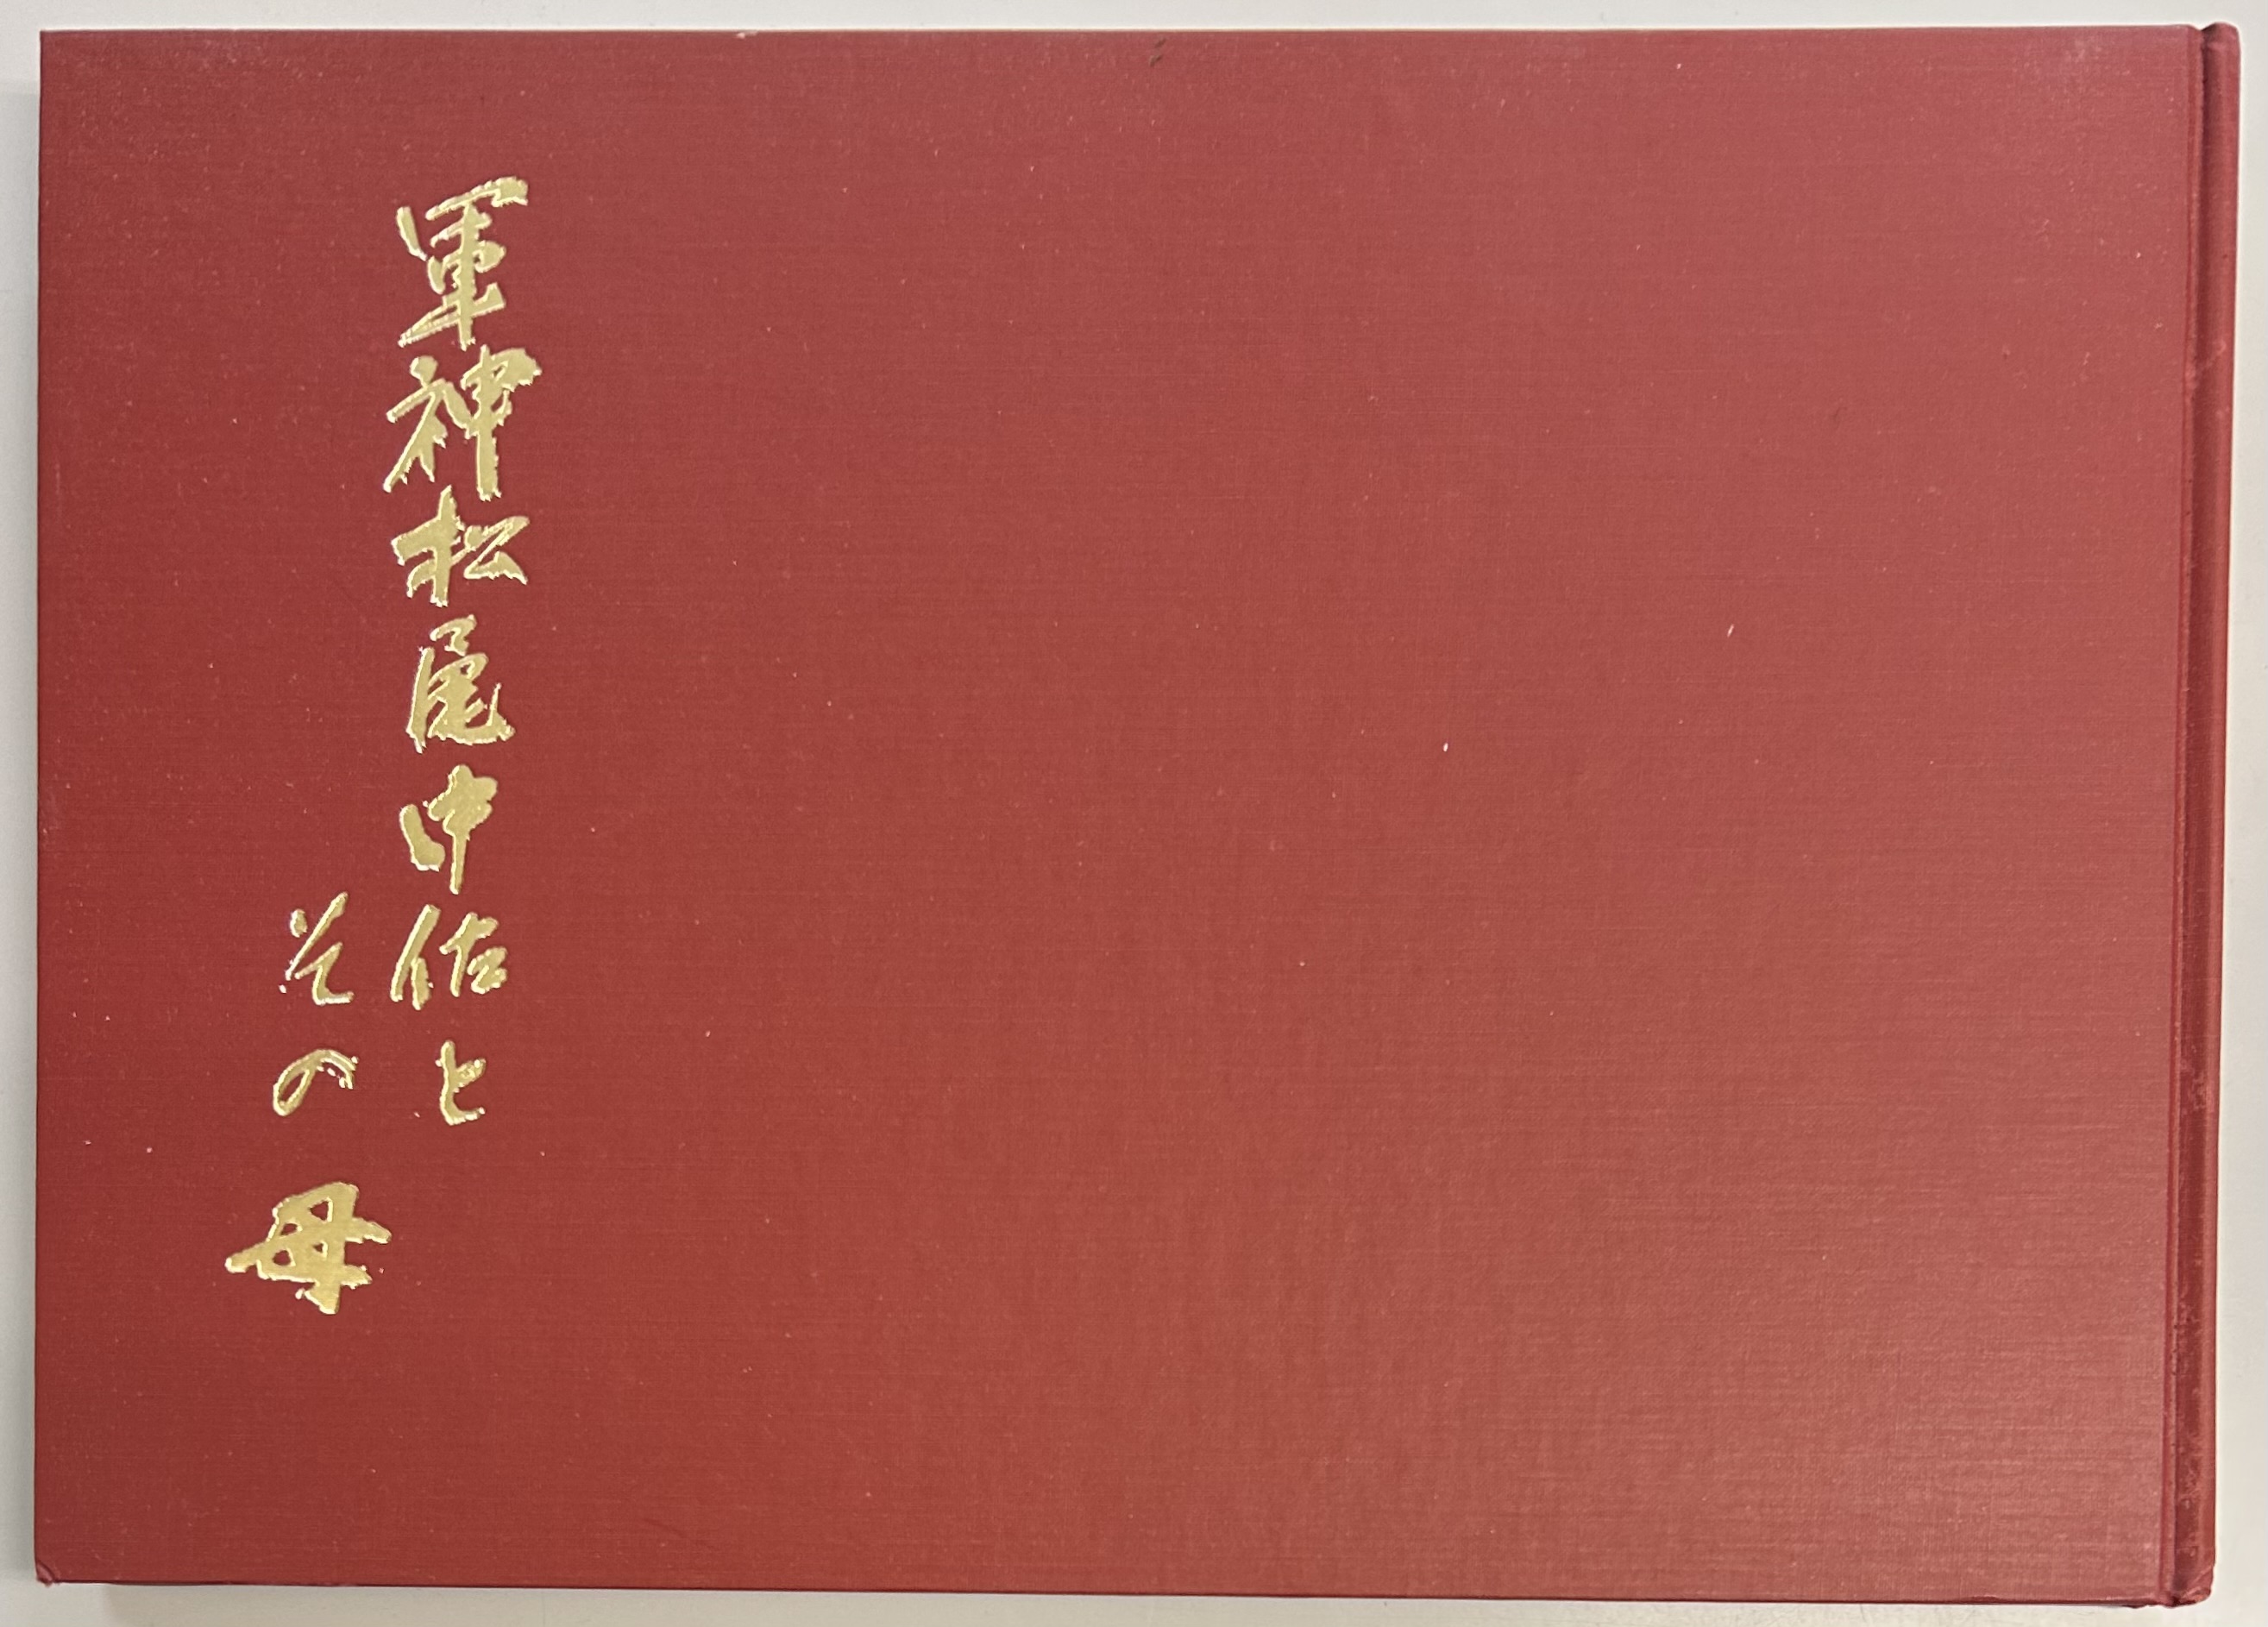 軍神松尾中佐と
その母